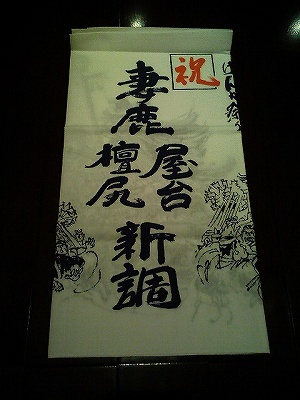 祝
妻鹿
屋台
檀尻
新調